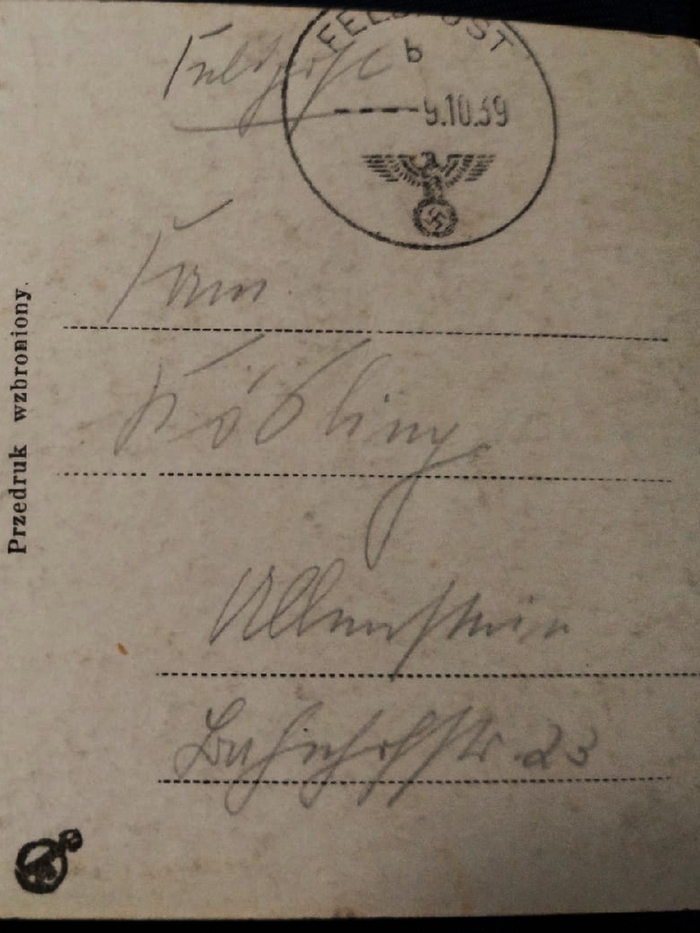 Feldpost
FELDPOST
b
9.10.39
Fam.
Kößling
Allenstein
Bahnhofstr. 23
Przedruk wzbroniony.